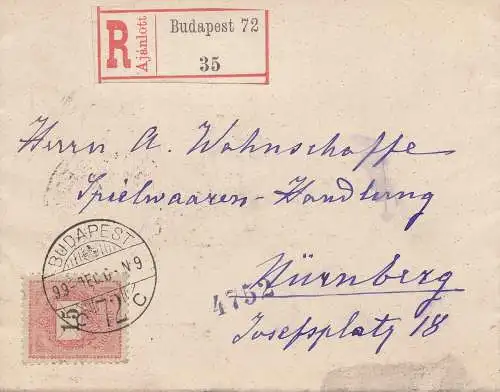 R Ajánlott
Budapest 72
35
Herrn A. Wohnschoffe
Spielwaaren-Handlung
Nürnberg
4752
Josefsplatz 18
BUDAPEST
72
C
15